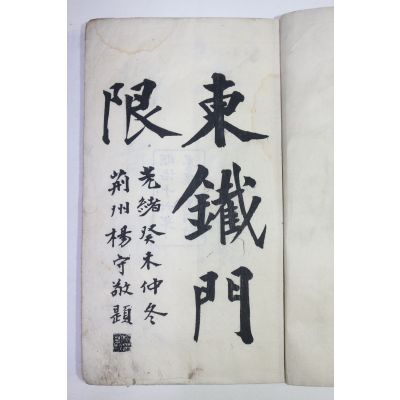 東鐵門
限
光緒癸未仲冬
荊州楊守敬題